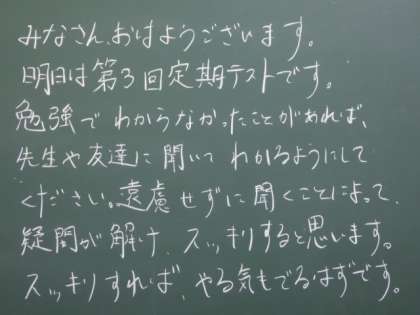 みなさん、おはようございます。
明日は第3回定期テストです。
勉強でわからなかったことがあれば、
先生や友達に聞いてわかるようにして
ください。遠慮せずに聞くことによって、
疑問が解け、スッキリすると思います。
スッキリすれば、やる気もでるはずです。